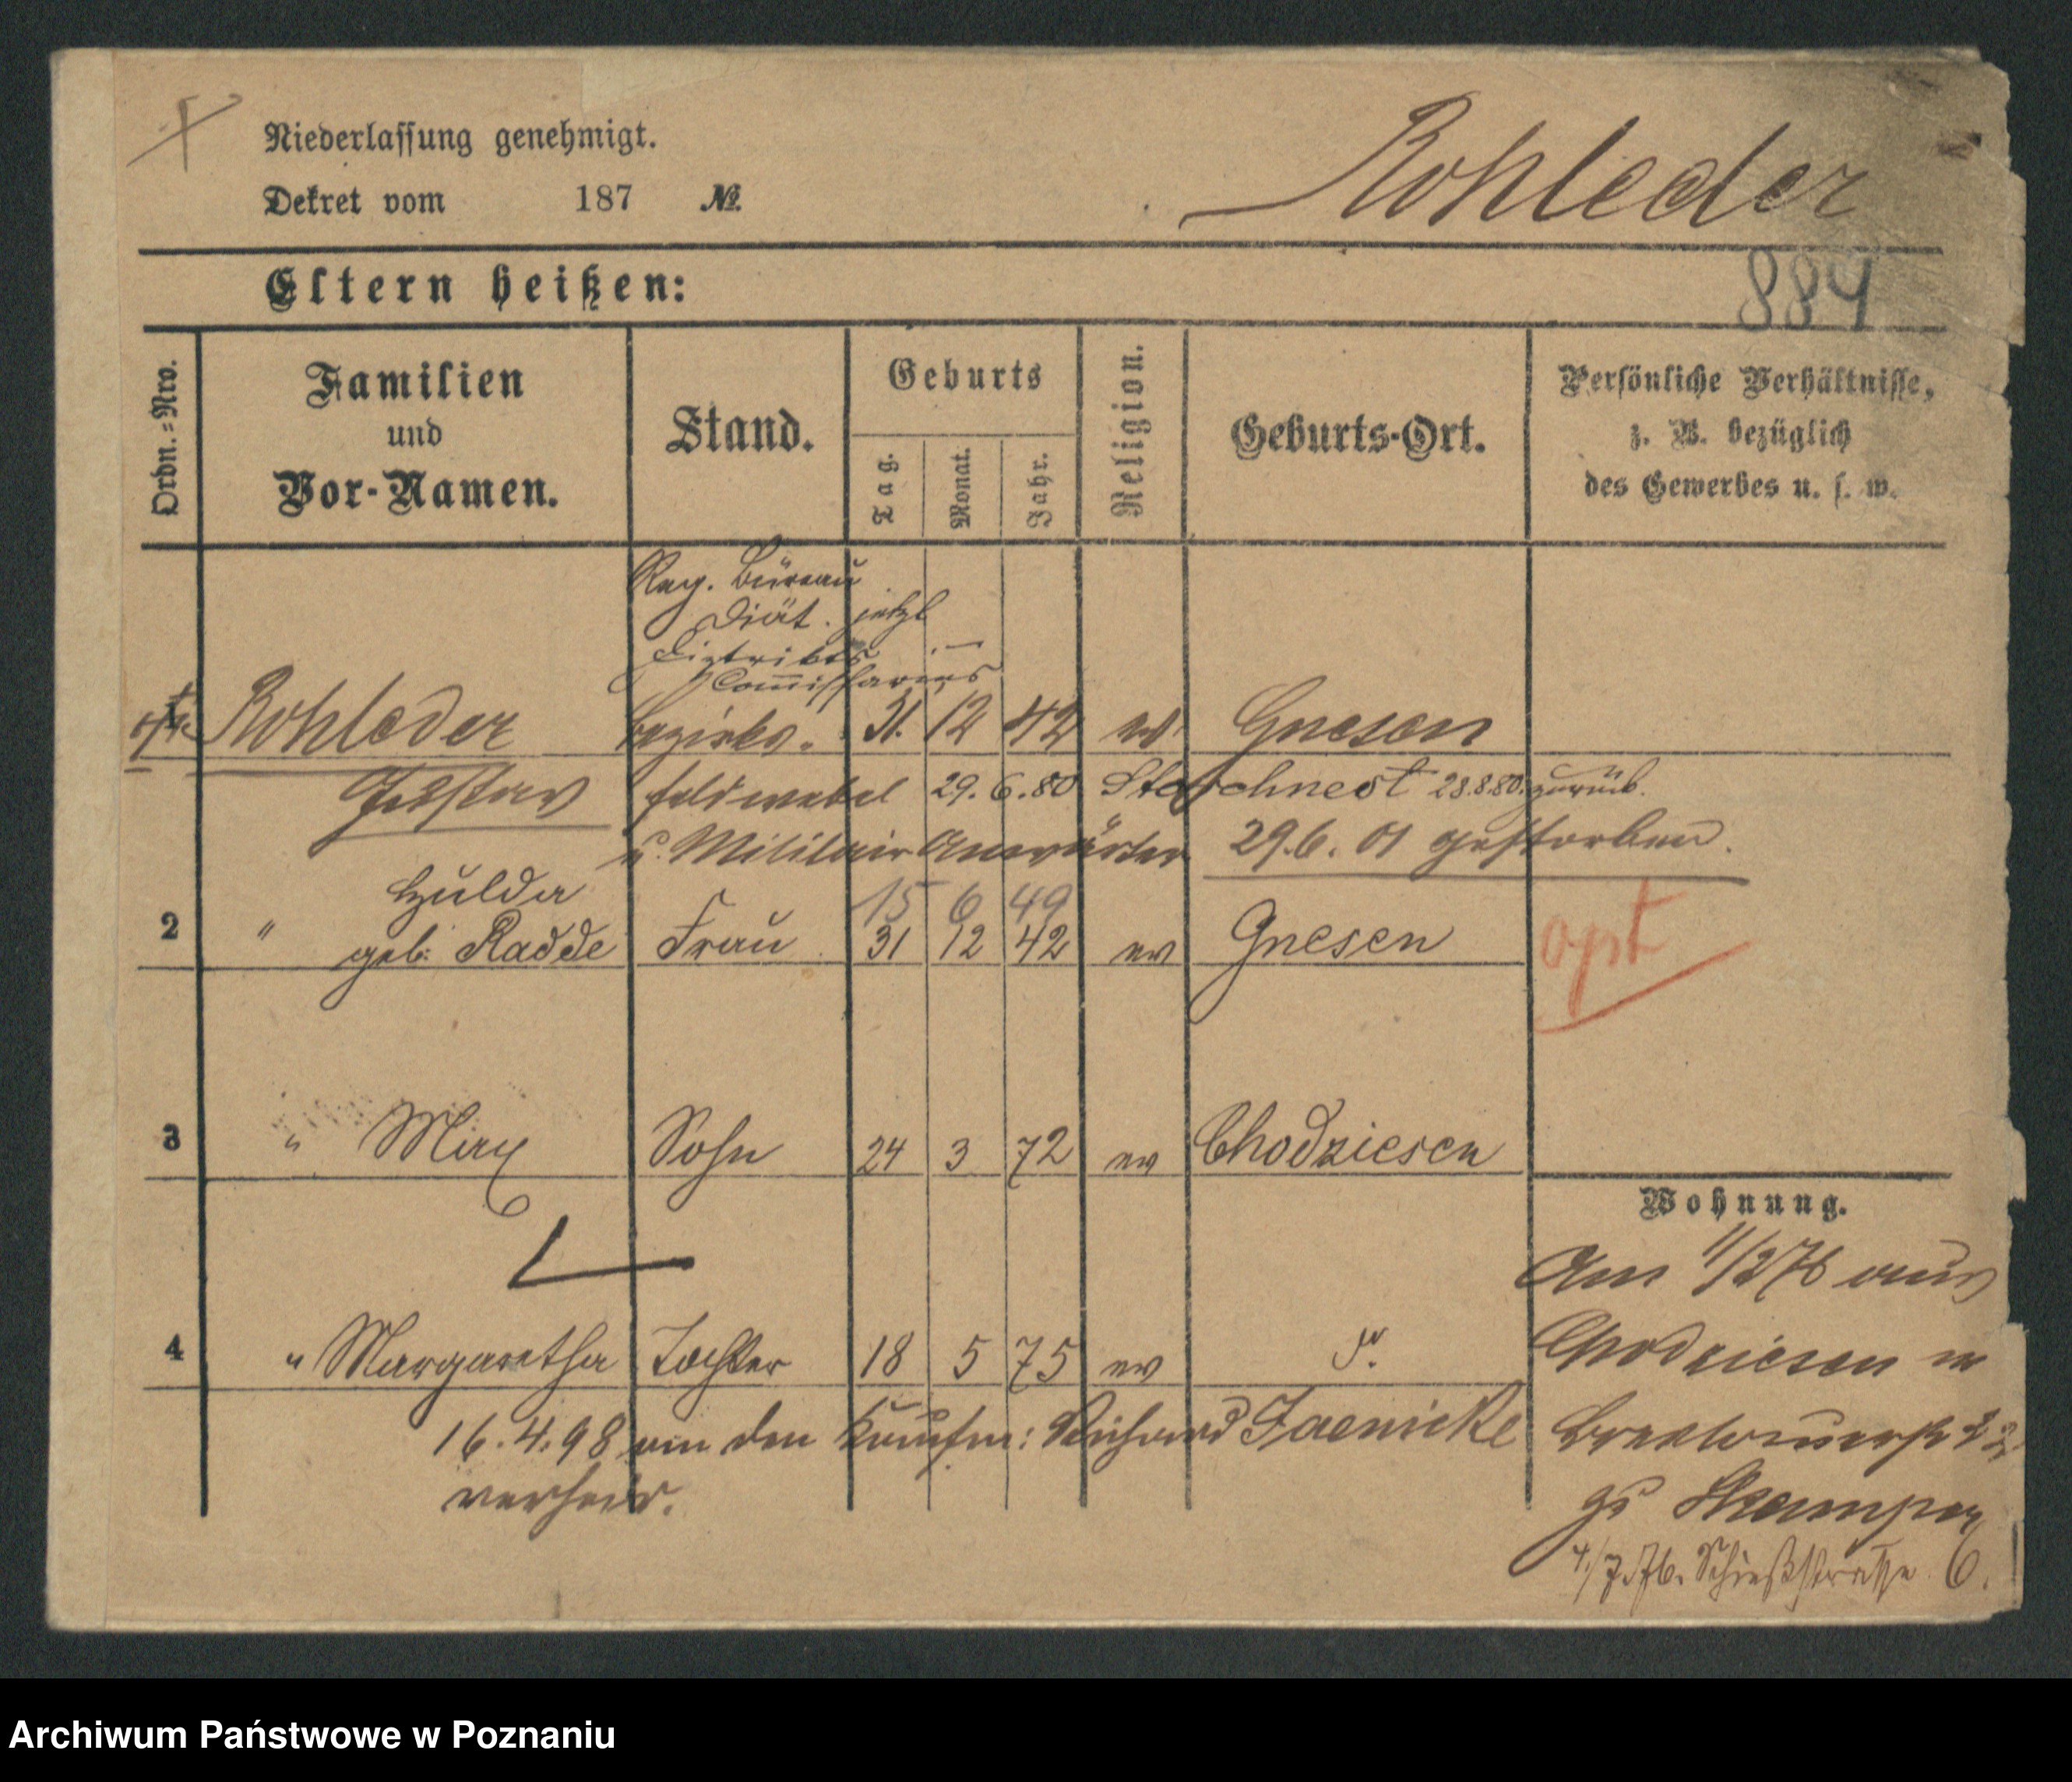 Niederlassung genehmigt.
Dekret vom 187 №
Rohleder
884
Eltern heißen:
Ordn.=Nro.
Familien
und
Vor-Namen.
Stand.
Geburts
Tag.
Monat.
Jahr.
Religion.
Geburts-Ort.
Persönliche Verhältnisse,
z. B. bezüglich
des Gewerbes u. s. w.
Reg. Büreau
Diät. jetzt
Distrikts
Commissarius
Rohleder Bezirks. 31. 12 42 ev Gnesen
Gustav Feldwebel 29.6.80 Storchnest 28.8.80. zurück.
u. Militair Anwärter 29.6.01 gestorben.
Hulda 15 6 49
2 " geb: Radde Frau 31 12 42 ev Gnesen opt
3 " Max Sohn 24 3 72 ev Chodziesen
Wohnung.
Am 11/2 76 aus
4 " Margaretha Tochter 18 5 75 ev
Chodziesen
16.4.98 an den Kaufm: Richard Jaenicke
verheir.
zu
4/7.76. Schießstrasse 6.
Archiwum Państwowe w Poznaniu